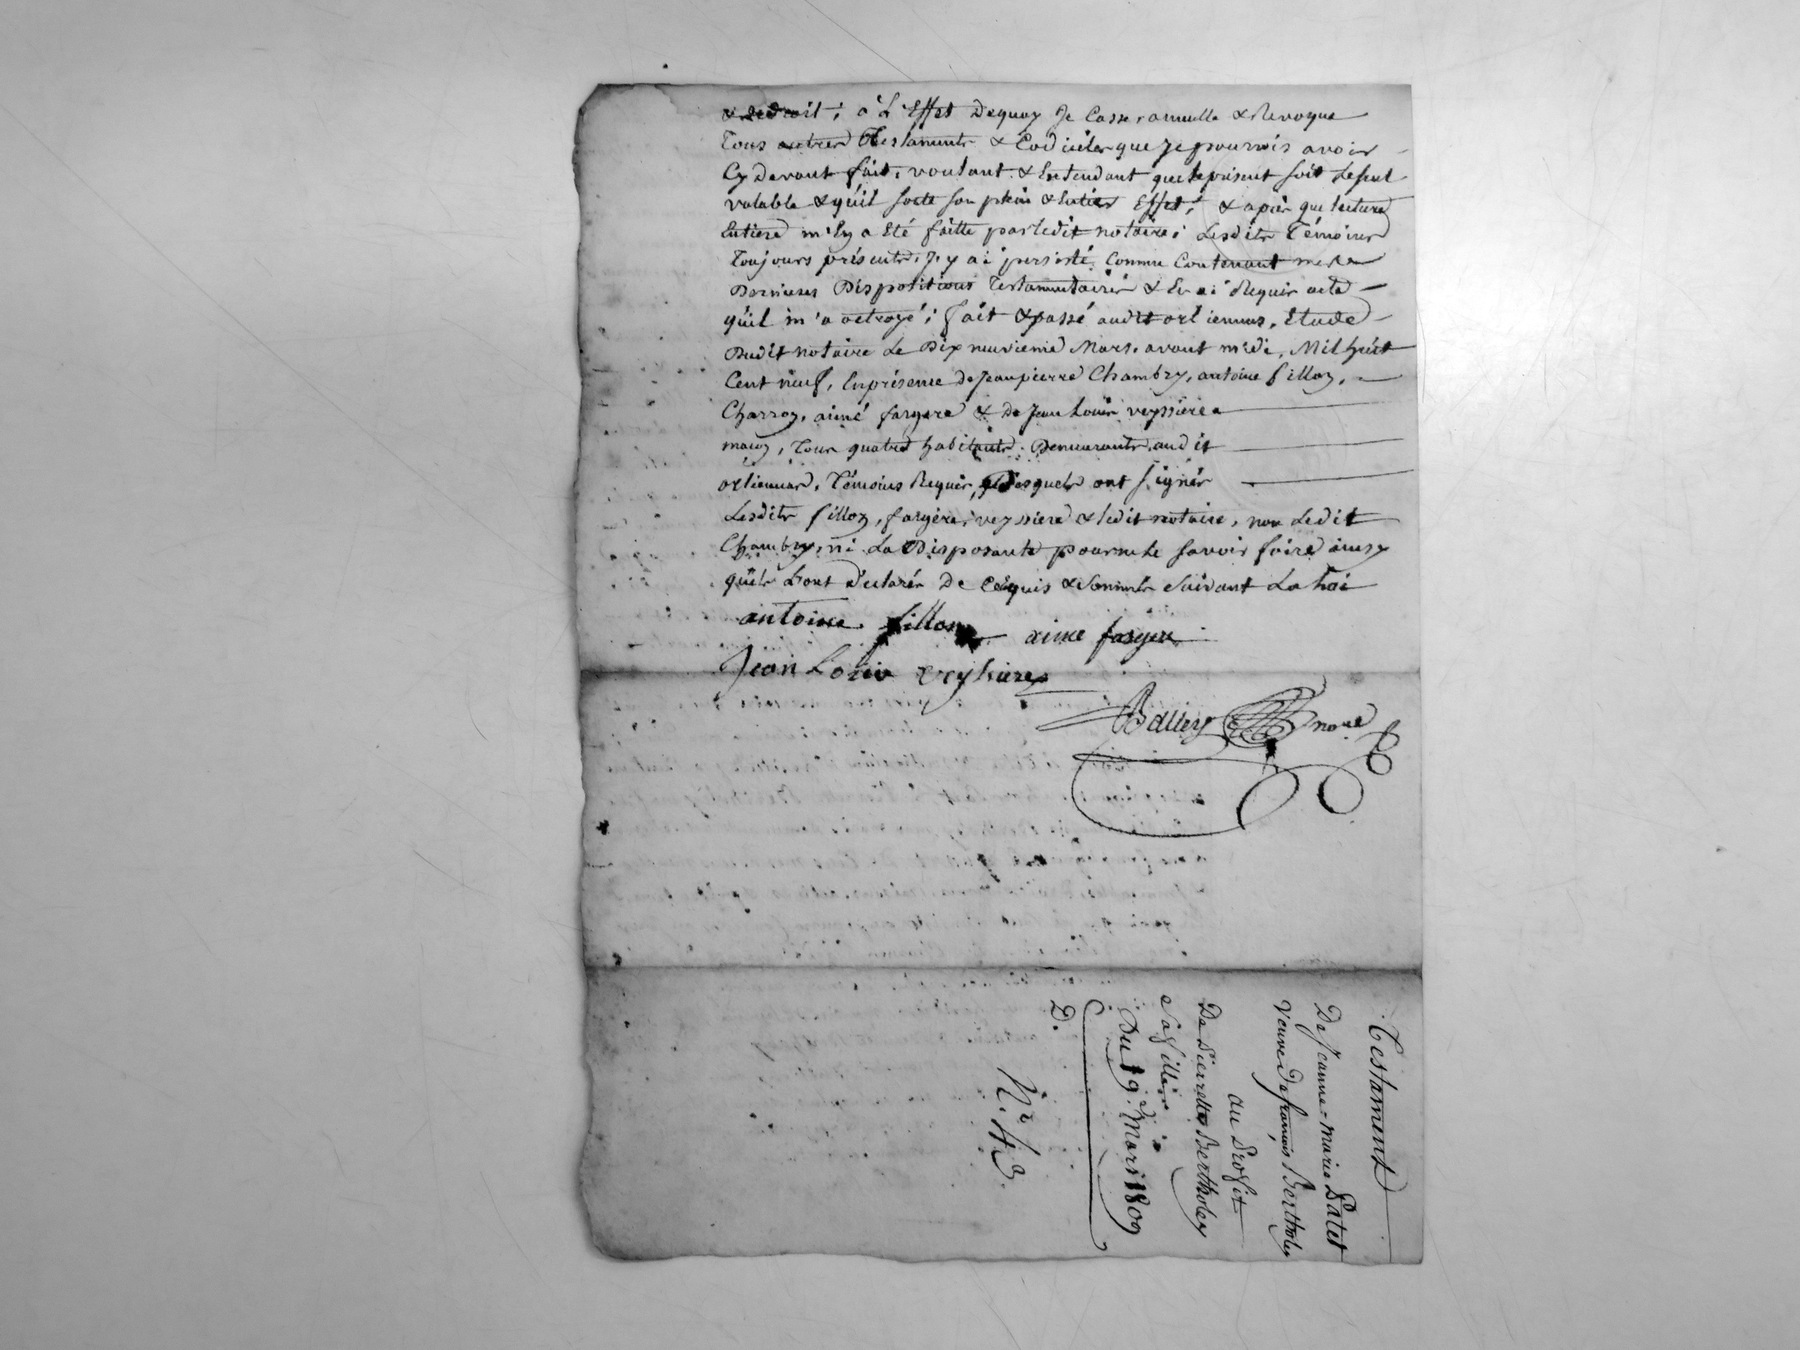 & de droit; à L'Effet Dequoy Je Casse, annulle & Revoque
Tous autres Testaments & Codiciles que Je pourrois avoir
Cy devant fait, voulant & Entendant que le présent soit Le seul
valable & qu'il sorte son plein & Entier Effet; & après que lecture
Entiere m'En a Eté faitte par ledit notaire; Lesdits Témoins
Toujours présents, J'y ai persisté, Comme Contenant mes
Dernieres Dispositions Testamentaires & En ai Requis acte
qu'il m'a octroyé; fait & passé audit orliennas, Etude
Dudit notaire Le Dix neuvieme Mars, avant midi, Mil huit
Cent neuf, En présence de Jean pierre Chambry, antoine fillon,
Charron, aimé fargere & de Jean Louis veyssiere
maçon, Tous quatre habitants, Demeurants audit
orliennas, Témoins Requis, Desquels ont signés
Lesdits fillon, fargère, veyssiere & ledit notaire, non Ledit
Chambry, ni La Disposante pour ne le savoir faire ainsy
qu'ils L'ont déclarés De Requis & Sommés Suivant La Loi
antoine fillon aime fargere
Jean Louis veyssiere
Balley nore
Testament
De Jeanne-marie Patet
veuve de françois Bertholey
au Profit
De Pierrette Bertholey
sa fille
Du 19 Mars 1809
D.
N. 43.